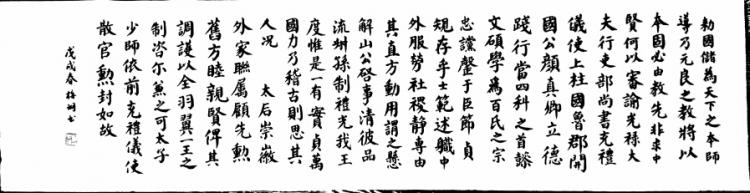 勑國儲為天下之本師
導乃元良之教將以
本固必由教先非求中
賢何以審諭光祿大
夫行吏部尚書充禮
儀使上柱國魯郡開
國公顏真卿立德
踐行當四科之首懿
文碩學為百氏之宗
忠讜罄于臣節貞
規存乎士範述職中
外服勞社稷静專由
其直方動用謂之懸
解山公啓事清彼品
流叔孫制禮光我王
度惟是一有實貞萬
國力乃稽古則思其
人况 太后崇徽
外家聯属顧先勲
舊方睦親賢俾其
調護以全羽翼一王之
制咨尔兼之可太子
少師依前充禮儀使
散官勲封如故
戊戌春 書